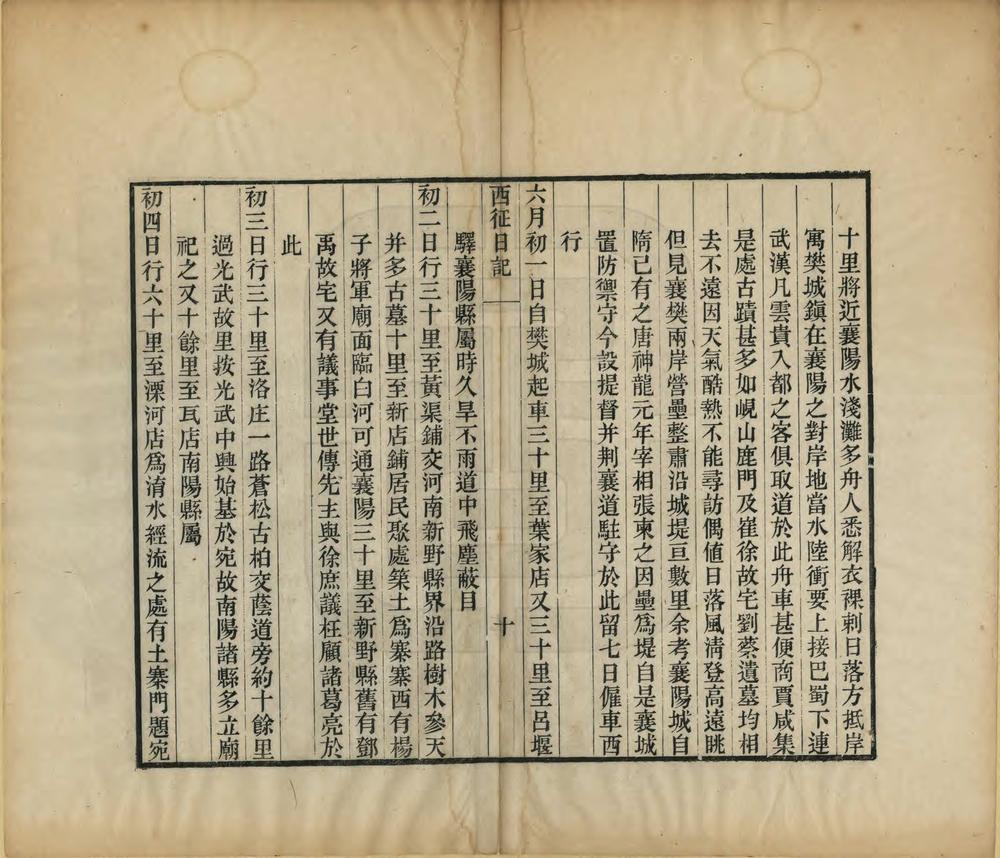 十里將近襄陽水淺灘多舟人悉解衣裸剌日落方抵岸
寓樊城鎮在襄陽之對岸地當水陸衝要上接巴蜀下連
武漢凡雲貴入都之客俱取道於此舟車甚便商賈咸集
是處古蹟甚多如峴山鹿門及崔徐故宅劉蔡遺墓均相
去不遠因天氣酷熱不能尋訪偶值日落風清登高遠眺
但見襄樊兩岸營壘整肅沿城堤亘數里余考襄陽城自
隋已有之唐神龍元年宰相張柬之因壘爲堤自是襄城
置防禦守今設提督并荆襄道駐守於此留七日僱車西
行
六月初一日自樊城起車三十里至葉家店又三十里至呂堰
西征日記 十
驛襄陽縣屬時久旱不雨道中飛塵蔽目
初二日行三十里至黃渠鋪交河南新野縣界沿路樹木參天
并多古墓十里至新店鋪居民聚處築土爲寨寨西有楊
子將軍廟面臨白河可通襄陽三十里至新野縣舊有鄧
禹故宅又有議事堂世傳先主與徐庶議枉顧諸葛亮於
此
初三日行三十里至洛庄一路蒼松古柏交蔭道旁約十餘里
過光武故里按光武中興始基於宛故南陽諸縣多立廟
祀之又十餘里至瓦店南陽縣屬
初四日行六十里至溧河店爲淯水經流之處有土寨門題宛